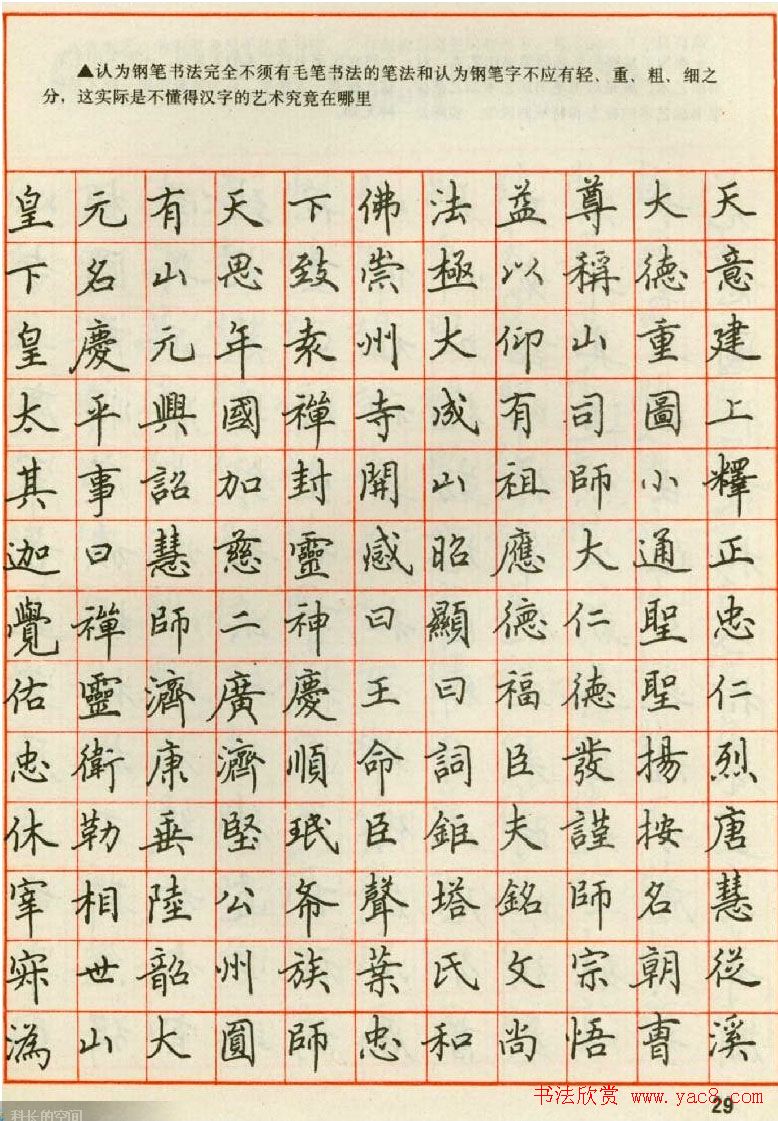 ▲认为钢笔书法完全不须有毛笔书法的笔法和认为钢笔字不应有轻、重、粗、细之
分，这实际是不懂得汉字的艺术究竟在哪里
皇元有天下佛法益尊大天
下名山思致崇極以稱德意
皇慶元年袁州大仰山重建
太平興國禪寺成有司圖上
其事詔加封開山祖師小釋
迦曰慧慈靈感昭應大通正
覺禪師二神曰顯德仁聖忠
佑靈濟廣慶王曰福德聖仁
忠衛康濟順命詞臣發揚烈
休勒垂堅珉臣鉅夫謹按唐
宰相陸公希聲塔銘師名慧
寂世韶州族葉氏文宗朝從
潙山大圓師忠和尚悟曹溪
书法欣赏 www.yac8.com
29
科长的空间